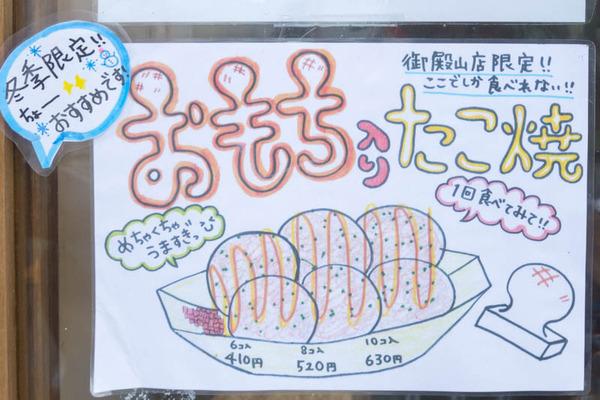 冬季限定!!
ちょー
おすすめです!
御殿山店限定!!
ここでしか食べれない!!
おもち入りたこ焼
1回食べてみて!!
めちゃくちゃ
うますぎっ
6コ入 8コ入 10コ入
410円 520円 630円